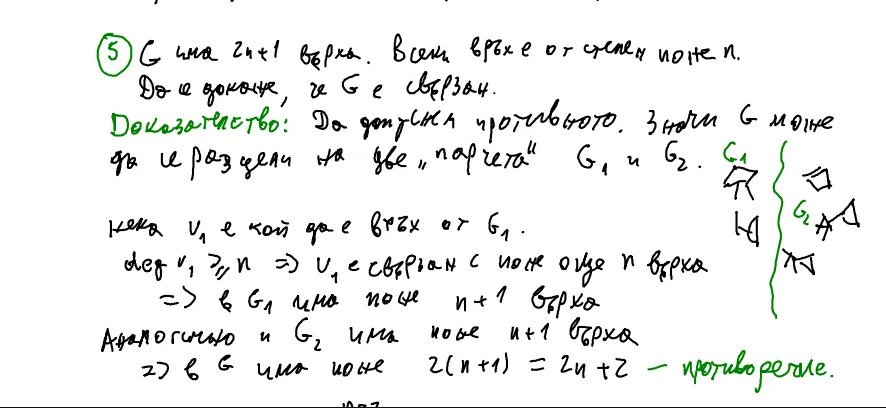 ⑤ G има 2n+1 върха. Всеки връх е от степен поне n.
Да се докаже, че G е свързан.
Доказателство: Да допуснем противното. Значи G може
да се раздели на две „парчета" G₁ и G₂.
G₁
G₂
Нека v₁ е кой да е връх от G₁.
deg v₁ ≥ n => v₁ е свързан с поне още n върха
=> в G₁ има поне n+1 върха
Аналогично и G₂ има поне n+1 върха
=> в G има поне 2(n+1) = 2n+2 – противоречие.